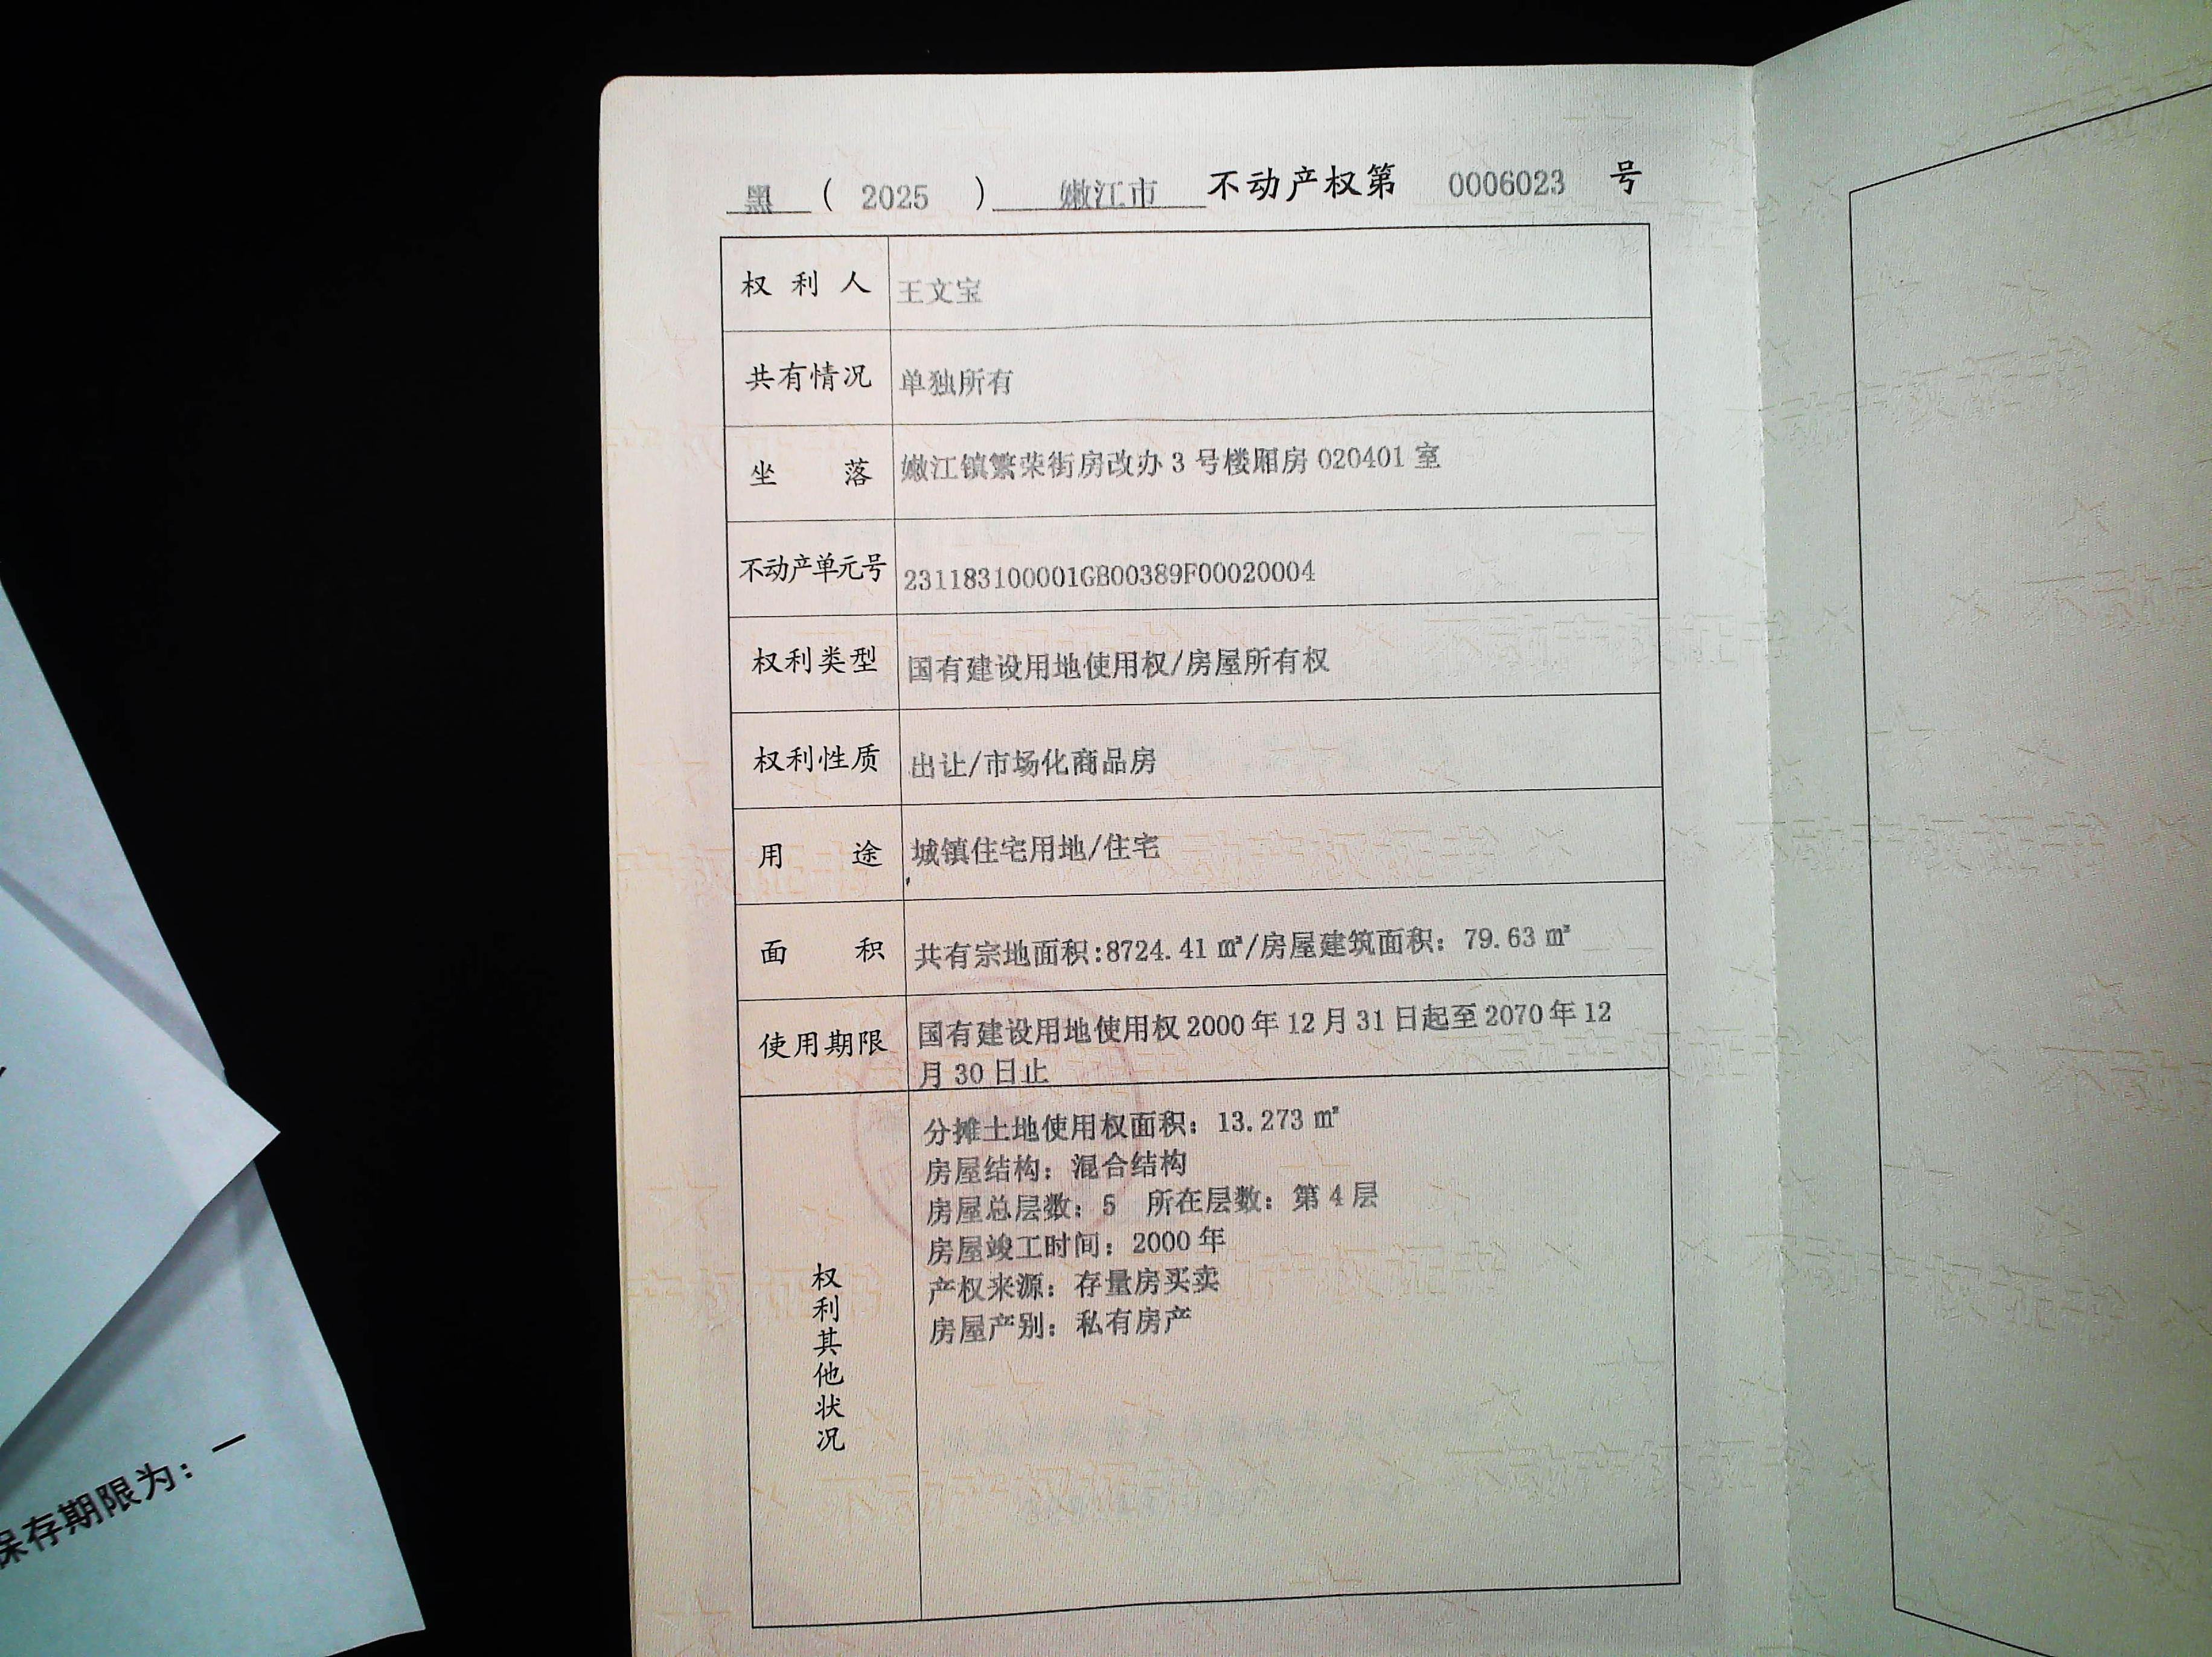 黑 ( 2025 ) 嫩江市 不动产权第 0006023 号
权利人 王文宝
共有情况 单独所有
坐落 嫩江镇繁荣街房改办 3 号楼厢房 020401 室
不动产单元号 231183100001GB00389F00020004
权利类型 国有建设用地使用权/房屋所有权
权利性质 出让/市场化商品房
用途 城镇住宅用地/住宅
面积 共有宗地面积:8724.41 ㎡/房屋建筑面积: 79.63 ㎡
使用期限 国有建设用地使用权 2000 年 12 月 31 日起至 2070 年 12
月 30 日止
权利其他状况
分摊土地使用权面积: 13.273 ㎡
房屋结构: 混合结构
房屋总层数: 5 所在层数: 第 4 层
房屋竣工时间: 2000 年
产权来源: 存量房买卖
房屋产别: 私有房产
保存期限为: 一